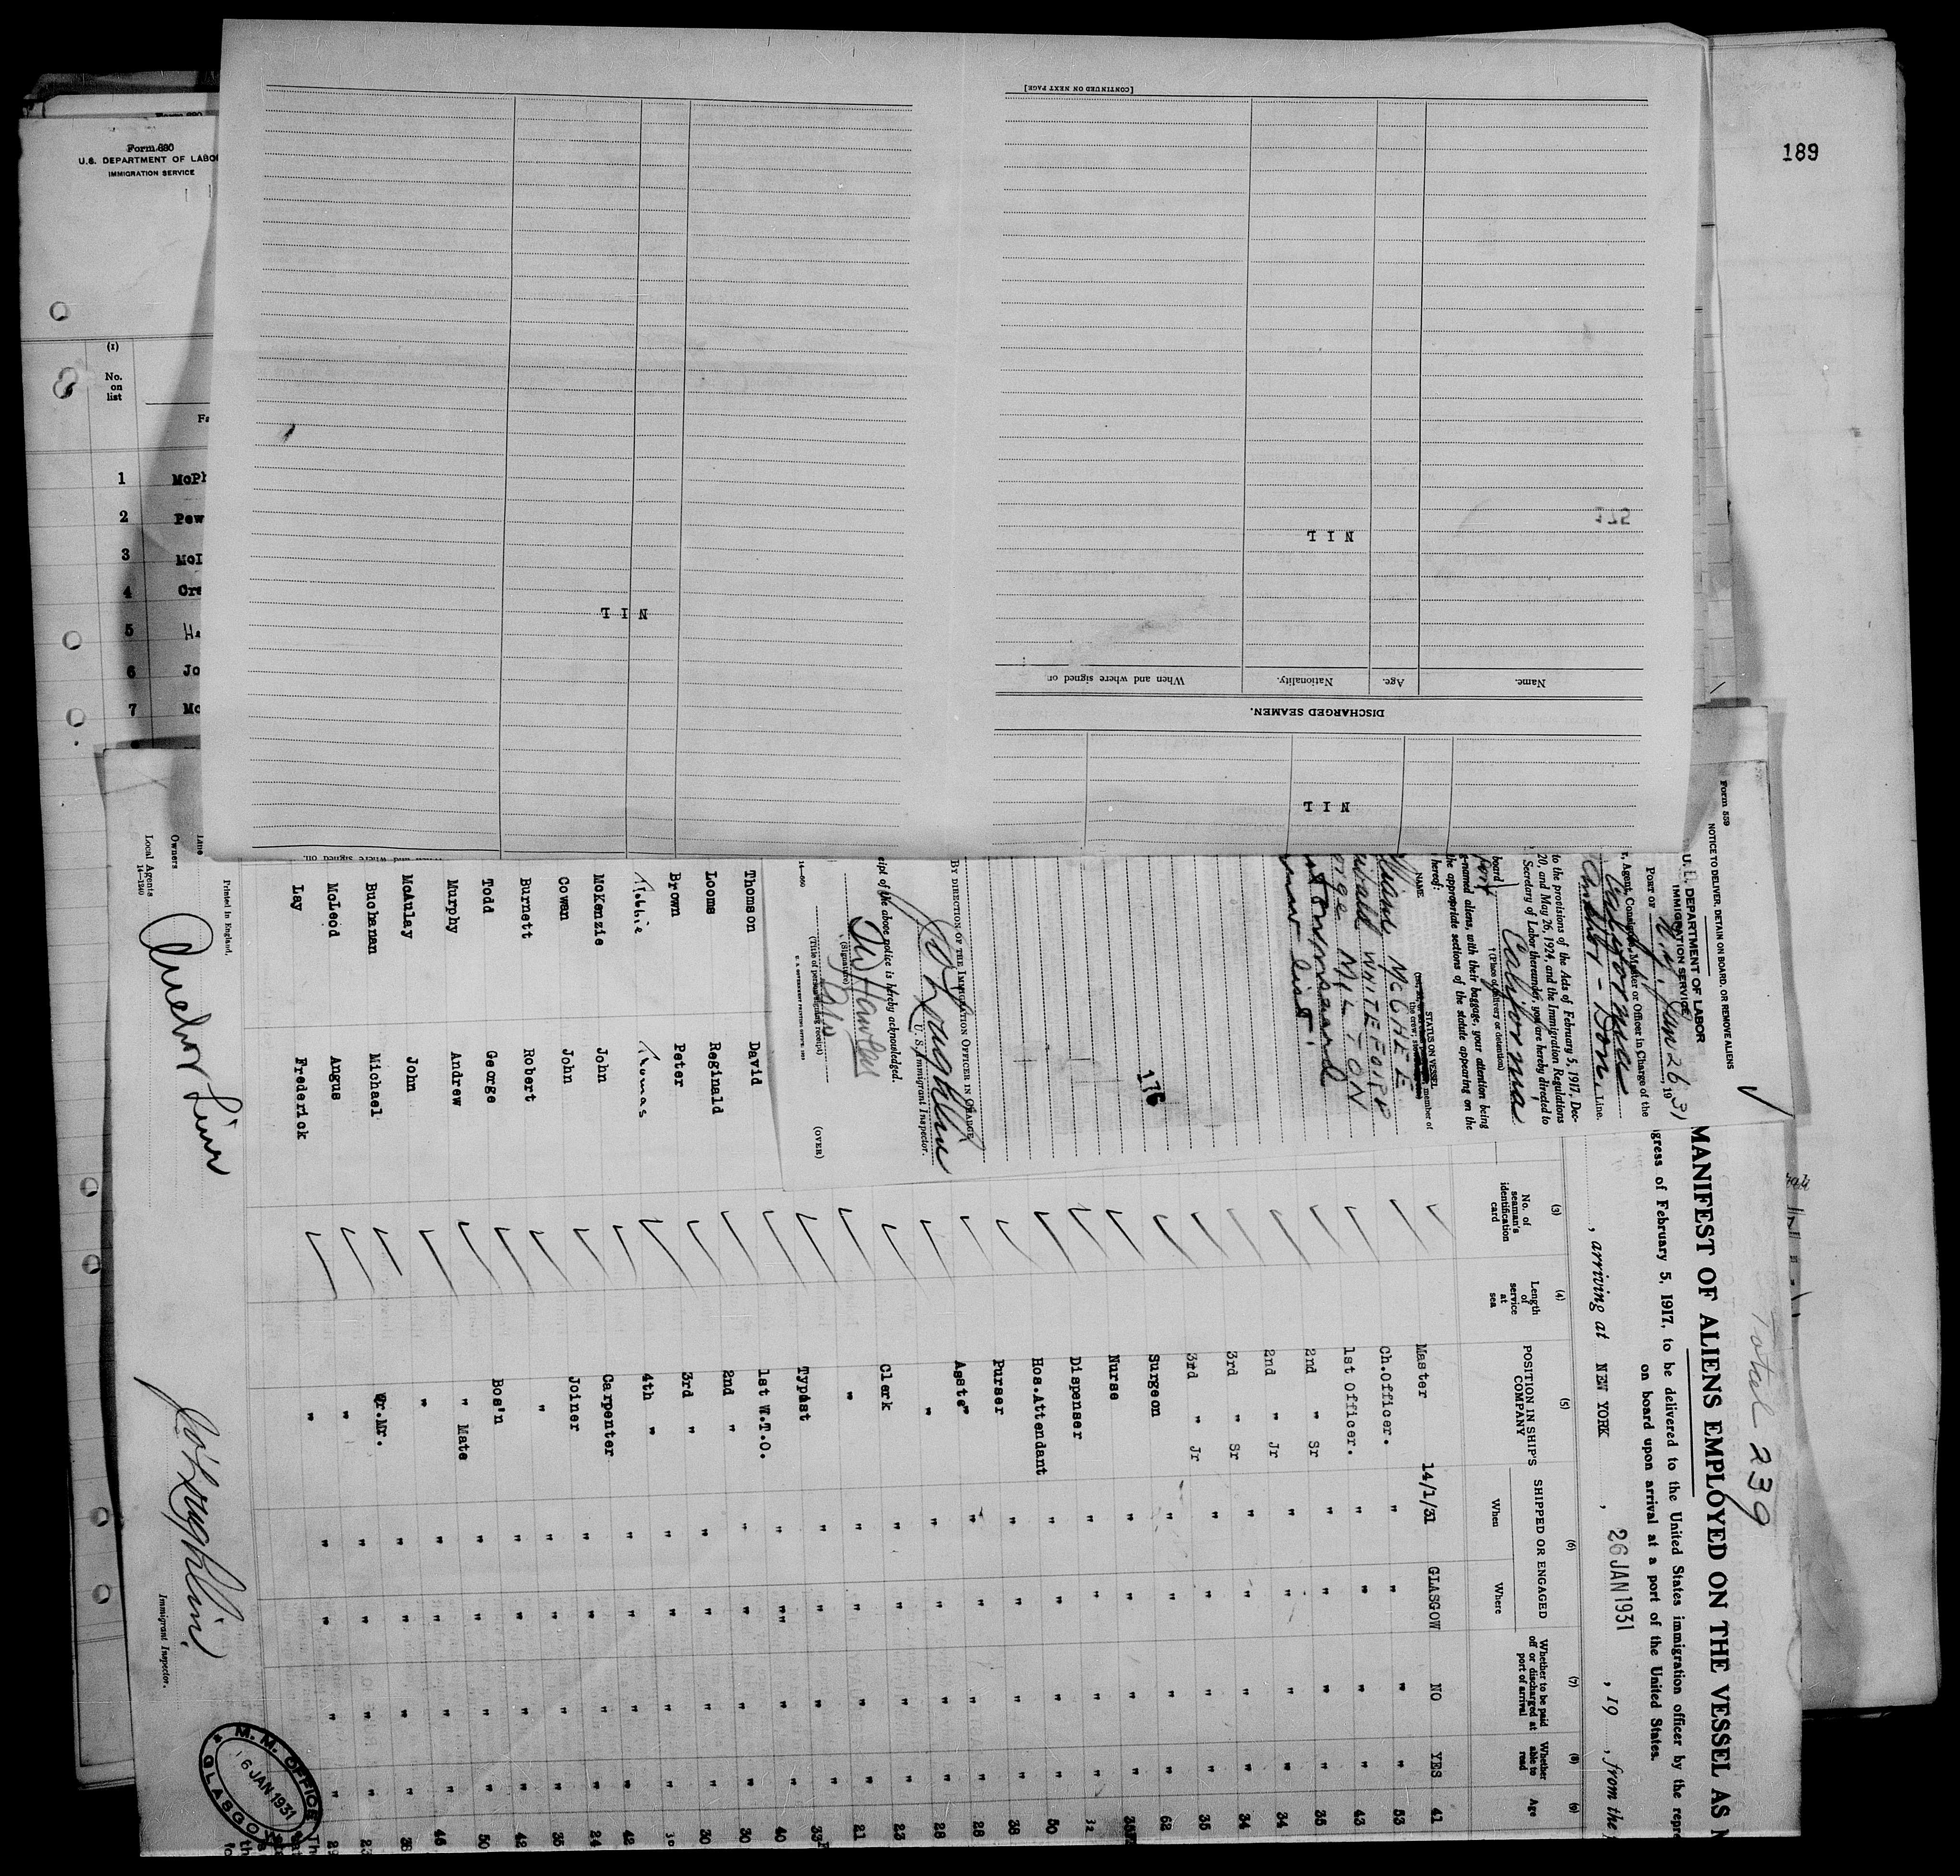 189
Form 680
U.S. DEPARTMENT OF LABO
IMMIGRATION SERVICE
(1)
No.
on
list
1
2
3
4
5
6
7
McPh
Pew
McI
Cre
Jo
Mc
[CONTINUED ON NEXT PAGE]
NIL
NIL
Name.
Age.
Nationality.
When and where signed on
DISCHARGED SEAMEN.
NIL
175
Form 559
NOTICE TO DELIVER, DETAIN ON BOARD, OR REMOVE ALIENS
U.S. DEPARTMENT OF LABOR
IMMIGRATION SERVICE
PORT OF N.Y. Jan 26, 1931
, Agent, Consignee, Master or Officer in Charge of the
California
Anchor - Don. Line.
to the provisions of the Acts of February 5, 1917, Dec-
20 and May 26, 1924, and the Immigration Regulations
Secretary of Labor thereunder, you are hereby directed to
board California
(Place of delivery or detention)
-named aliens, with their baggage, your attention being
the appropriate sections of the statute appearing on the
hereof:
NAME
STATUS ON VESSEL
lliam McGHEE
WHITEFORD
MILTON
176
BY DIRECTION OF THE IMMIGRATION OFFICER IN CHARGE
J O'Laughlin
U.S. Immigrant Inspector.
eipt of the above notice is hereby acknowledged.
(Signature)
(Title of person signing receipt)
(OVER)
Total 239
MANIFEST OF ALIENS EMPLOYED ON THE VESSEL AS M
gress of February 5, 1917, to be delivered to the United States immigration officer by the repre
on board upon arrival at a port of the United States.
, arriving at NEW YORK , 26 JAN 1931 , 19 , from the
(3)
No. of
seaman's
identification
card
(4)
Length
of
service
at
sea
(5)
POSITION IN SHIP'S
COMPANY
(6)
SHIPPED OR ENGAGED
When
Where
(7)
Whether to be paid
off or discharged at
port of arrival
(8)
Whether
able to
read
(9)
Age
Master 14/1/31 GLASGOW NO YES 41
Ch.Officer. " " " " 53
1st Officer. " " " " 43
2nd " Sr " " " " 35
2nd " Jr " " " " 34
3rd " Sr " " " " 34
3rd " Jr " " " " 35
Surgeon " " " " 62
Nurse " " " "
Dispenser " " " "
Hos.Attendant " " " " 50
Purser " " " " 38
Asst " " " " " 28
" " " " " 28
Clerk " " " " 23
" " " " " 21
Typist " " " " 33
1st W.T.O. " " " " 40
Thomson David 2nd " " " " " 30
Looms Reginald 3rd " " " " " 30
Brown Peter 4th " " " " "
Robbie Thomas Carpenter " " " " 42
McKenzie John Joiner " " " " 24
Cowan John " " " " " 35
Burnett Robert Bos'n " " " " 42
Todd George " Mate " " " " 50
Murphy Andrew " " " " " 46
McAulay John Qr.Mr. " " " "
Buchanan Michael " " " " "
McLeod Angus " " " " "
Lay Frederick
Printed in England.
Line
Owners
Local Agents
14-1240
Anchor Line
J O'Laughlin.
Immigrant Inspector.
M. M. OFFICE
16 JAN 1931
GLASGOW